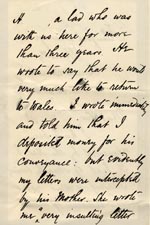 H      a lad who was
with us here for more
than three years. He
wrote to say that he wd
very much like to return
to Wales. I wrote immediately
and told him that I
deposited money for his
Conveyance: but evidently
my letters were intercepted
by his Mother. She wrote
me a very insulting letter